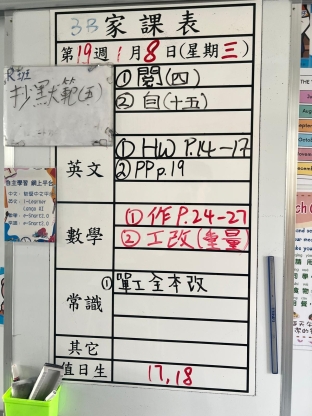 3B 家課表
第19週 1月8日(星期三)
R班
抄黑犬範(五)
① 閱(四)
② 自(十五)
英文
① HW P.14-17
② PP p.19
數學
① 作 P.24-27
② 工改(重量)
常識
① 單工全本改
其它
值日生 17,18
自主學習 網上平台